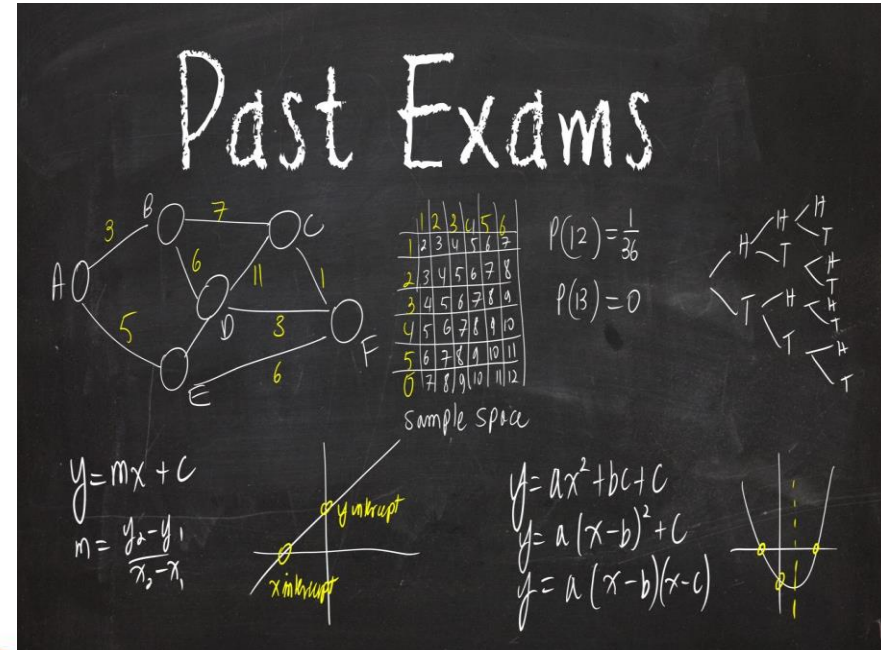 Past Exams
B
7
C
3
A
6
11
1
5
D
3
F
E
6
1 2 3 4 5 6
1 2 3 4 5 6 7
2 3 4 5 6 7 8
3 4 5 6 7 8 9
4 5 6 7 8 9 10
5 6 7 8 9 10 11
0 7 8 9 10 11 12
sample space
P(12)=1/36
P(13)=0
H
T
H
T
H
T
H
T
H
T
H
T
H
T
y=mx+c
m=y₂-y₁/x₂-x₁
y intercept
x intercept
y=ax²+bc+c
y=a(x-b)²+c
y=a(x-b)(x-c)